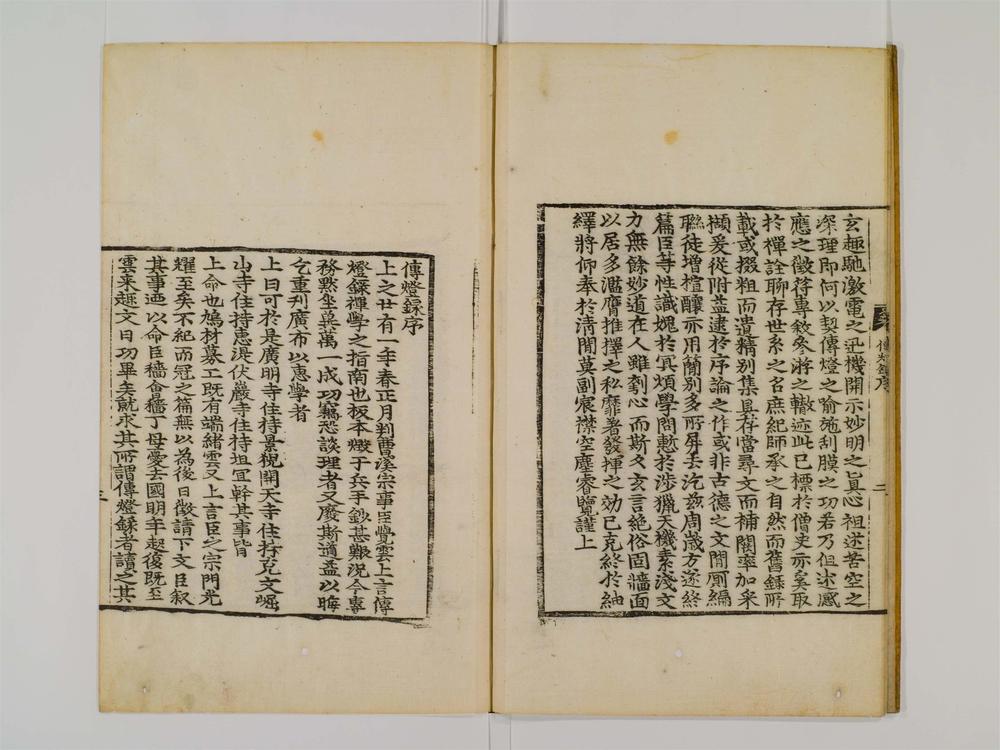 玄趣馳激電之迅機開示妙明之真心祖述苦空之
深理即何以契傳燈之喻施刮膜之功若乃但述感
應之徵符專敘參游之轍迹此已標於僧史亦奚取
於禪詮聊存世系之名庶紀師承之自然而舊錄所
載或掇粗而遺精別集具存當尋文而補闕率加采
擷爰從附益逮於序論之作或非古德之文間厠編
聯徒增楦釀亦用簡別多所屏去汔茲周歲方遂終
篇臣等性識媿於冥煩學問慙於涉獵天機素淺文
力無餘妙道在人雖刳心而斯久玄言絕俗固牆面
以居多濫膺推擇之私靡著發揮之効已克終於紬
繹將仰奉於清閒莫副宸襟空塵睿覽謹上
傳灯錄序
二
傳燈錄序
上之廿有一年春正月判曹溪宗事臣覺雲上言傳
燈錄禪學之指南也板本燬于兵手鈔甚艱況今專
務默坐冀萬一成功竊恐談理者又廢斯道益以晦
乞重刊廣布以惠學者
上曰可於是廣明寺住持景猊開天寺住持克文崛
山寺住持惠湜伏巖寺住持坦宜幹其事皆
上命也鳩材募工既有端緒雲又上言臣之宗門光
耀至矣不紀而冠之篇無以為後日徵請下文臣叙
其事迺以命臣穡會穡丁母憂去國明年起復既至
雲来趣文日功畢矣就求其所謂傳燈錄者讀之其
三